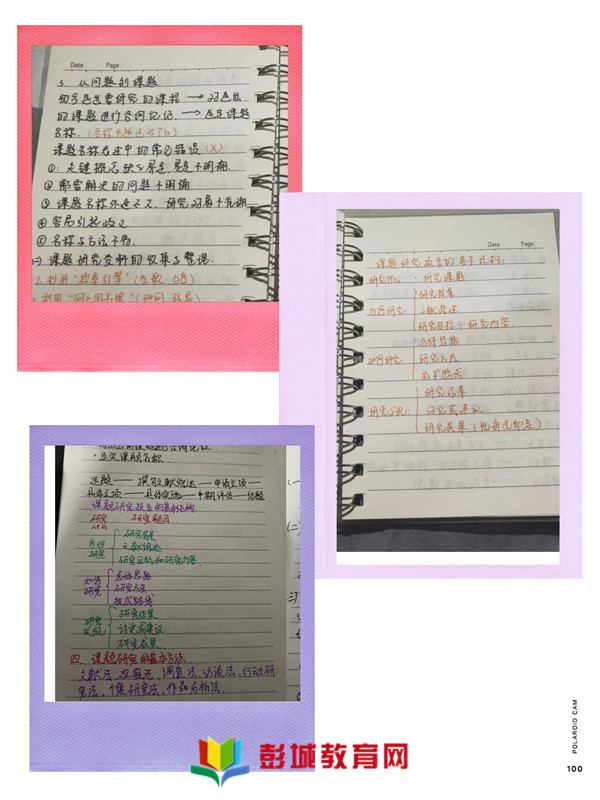 Date: Page:
3. 从问题到课题
初步选出要研究的课题 → 对选出
的课题进行咨询论证 → 选定课题
名称.
课题名称表述中的常见错误(X)
①: 关键概念缺乏界定, 界定不明确.
② 需要解决的问题不明确
③ 课题名称外延过大, 研究对象不明确
④ 容易引起歧义
⑤ 名称与方法不符.
课题研究资料的收集与整理.
1. 利用"搜索引擎"(谷歌 百度)
Date: Page:
课题研究报告的基本结构:
研究什么: 研究课题
为何研究: 研究背景
文献综述
研究目标和研究内容.
如何研究: 总体思路
研究方法
技术路线
研究发现: 研究结果
讨论或建议
研究成果
·选定课题名称.
选题 — 撰写文献综述 — 申请立项 —
具体实施 — 中期评估 — 结题.
课题研究报告的基本结构
研究什么 研究题目
为何研究 研究背景
文献综述
研究目标和研究内容
如何研究 总体思路
研究方法
技术路线
研究发现 研究结果
讨论或建议
研究成果
四. 课题研究的基本方法.
文献法、观察法、调查法、访谈法、行动研
究法、个案研究法、作品分析法.
彭城教育网
POLAROID CAM
100